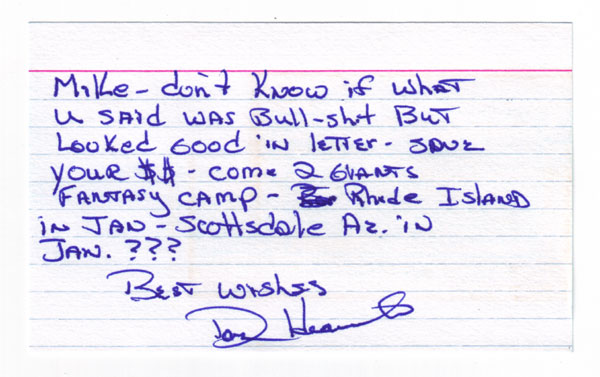 Mike - don't know if what
u said was Bull-sht But
Looked Good in letter - save
your $$ - come 2 Giants
Fantasy camp - Rhode Island
in Jan - Scottsdale Az. in
Jan. ???
Best wishes
Dave